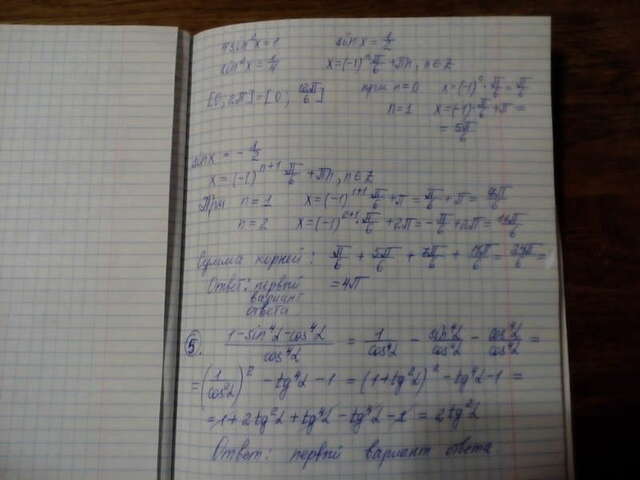 4sin²x=1 sinx=1/2
sin²x=1/4 x=(-1)ⁿ π/6 +πn, n∈Z
[0; 2π]=[0; 12π/6] при n=0 x=(-1)⁰·π/6=π/6
n=1 x=(-1)·π/6+π=
= 5π/6
sinx=-1/2
x=(-1)ⁿ⁺¹ π/6 +πn, n∈Z
При n=1 x=(-1)¹⁺¹·π/6+π=π/6+π=7π/6
n=2 x=(-1)²⁺¹·π/6+2π=-π/6+2π=11π/6
Сумма корней: π/6 + 5π/6 + 7π/6 + 11π/6=24π/6=
Ответ: первый =4π
вариант
ответа
5. (1-sin⁴α-cos⁴α)/cos⁴α = 1/cos⁴α - sin⁴α/cos⁴α - cos⁴α/cos⁴α =
=(1/cos²α)² -tg⁴α-1 =(1+tg²α)²-tg⁴α-1 =
=1+2tg²α+tg⁴α-tg⁴α-1=2tg²α
Ответ: первый вариант ответа